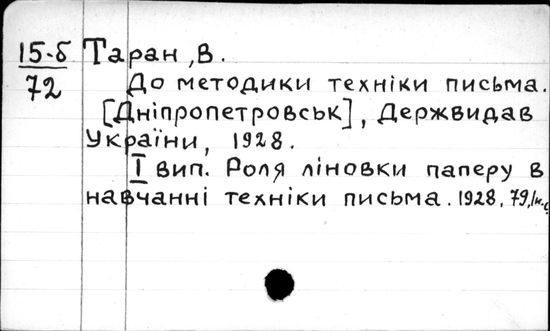 15-б Таран, В.
72
До методики техніки письма.
[Дніпропетровськ], Держвидав
України, 1928.
I вип. Роля ліновки паперу в
навчанні техніки письма. 1928. 79,